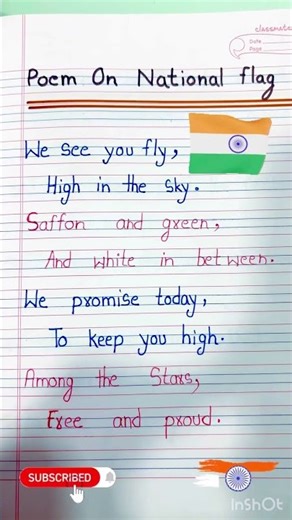 classmate
Date
Page
Poem On National flag
We see you fly,
High in the sky.
Saffon and green,
And white in between.
We promise today,
To keep you high.
Among the Stars,
Free and proud.
SUBSCRIBED
InShot